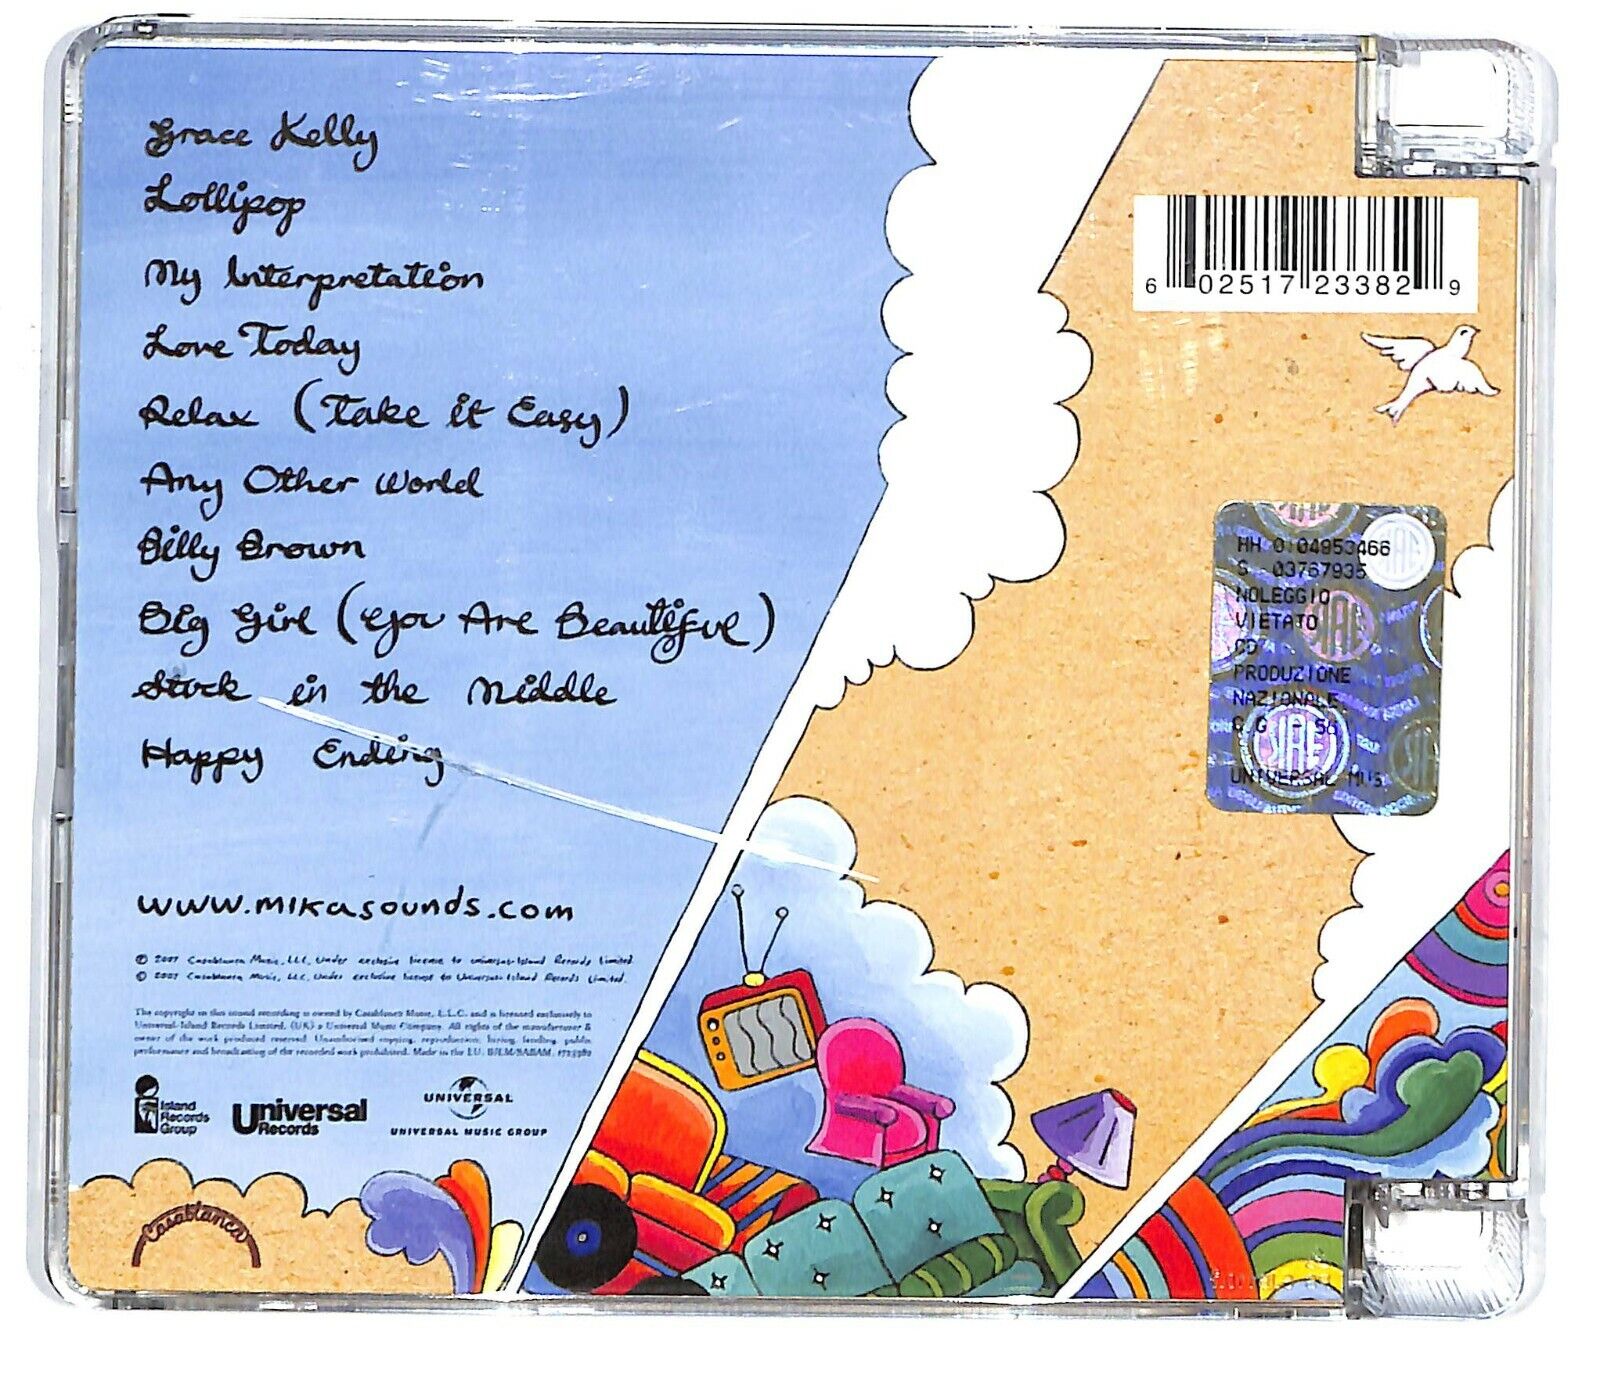 Grace Kelly
Lollipop
My Interpretation
Love Today
Relax (Take it Easy)
Any Other World
Billy Brown
Big Girl (You Are Beautiful)
Stuck in the Middle
Happy Ending
www.mikasounds.com
℗ 2007 Casablanca Music, LLC, Under exclusive license to Universal-Island Records Limited.
© 2007 Casablanca Music, LLC, Under exclusive license to Universal-Island Records Limited.
The copyright in this sound recording is owned by Casablanca Music, L.L.C. and is licensed exclusively to
Universal-Island Records Limited. (UK) a Universal Music Company. All rights of the manufacturer &
owner of the work produced reserved. Unauthorised copying, reproduction, hiring, lending, public
performance and broadcasting of the recorded work prohibited. Made in the EU. BIEM/SABAM. 1723382
Island
Records
Group
Universal
Records
UNIVERSAL
UNIVERSAL MUSIC GROUP
Casablanca
6 02517 23382 9
HH 0104953466
S 03767935
NOLEGGIO
VIETATO
CD
PRODUZIONE
NAZIONALE
SIAE
UNIVERSAL MUS.